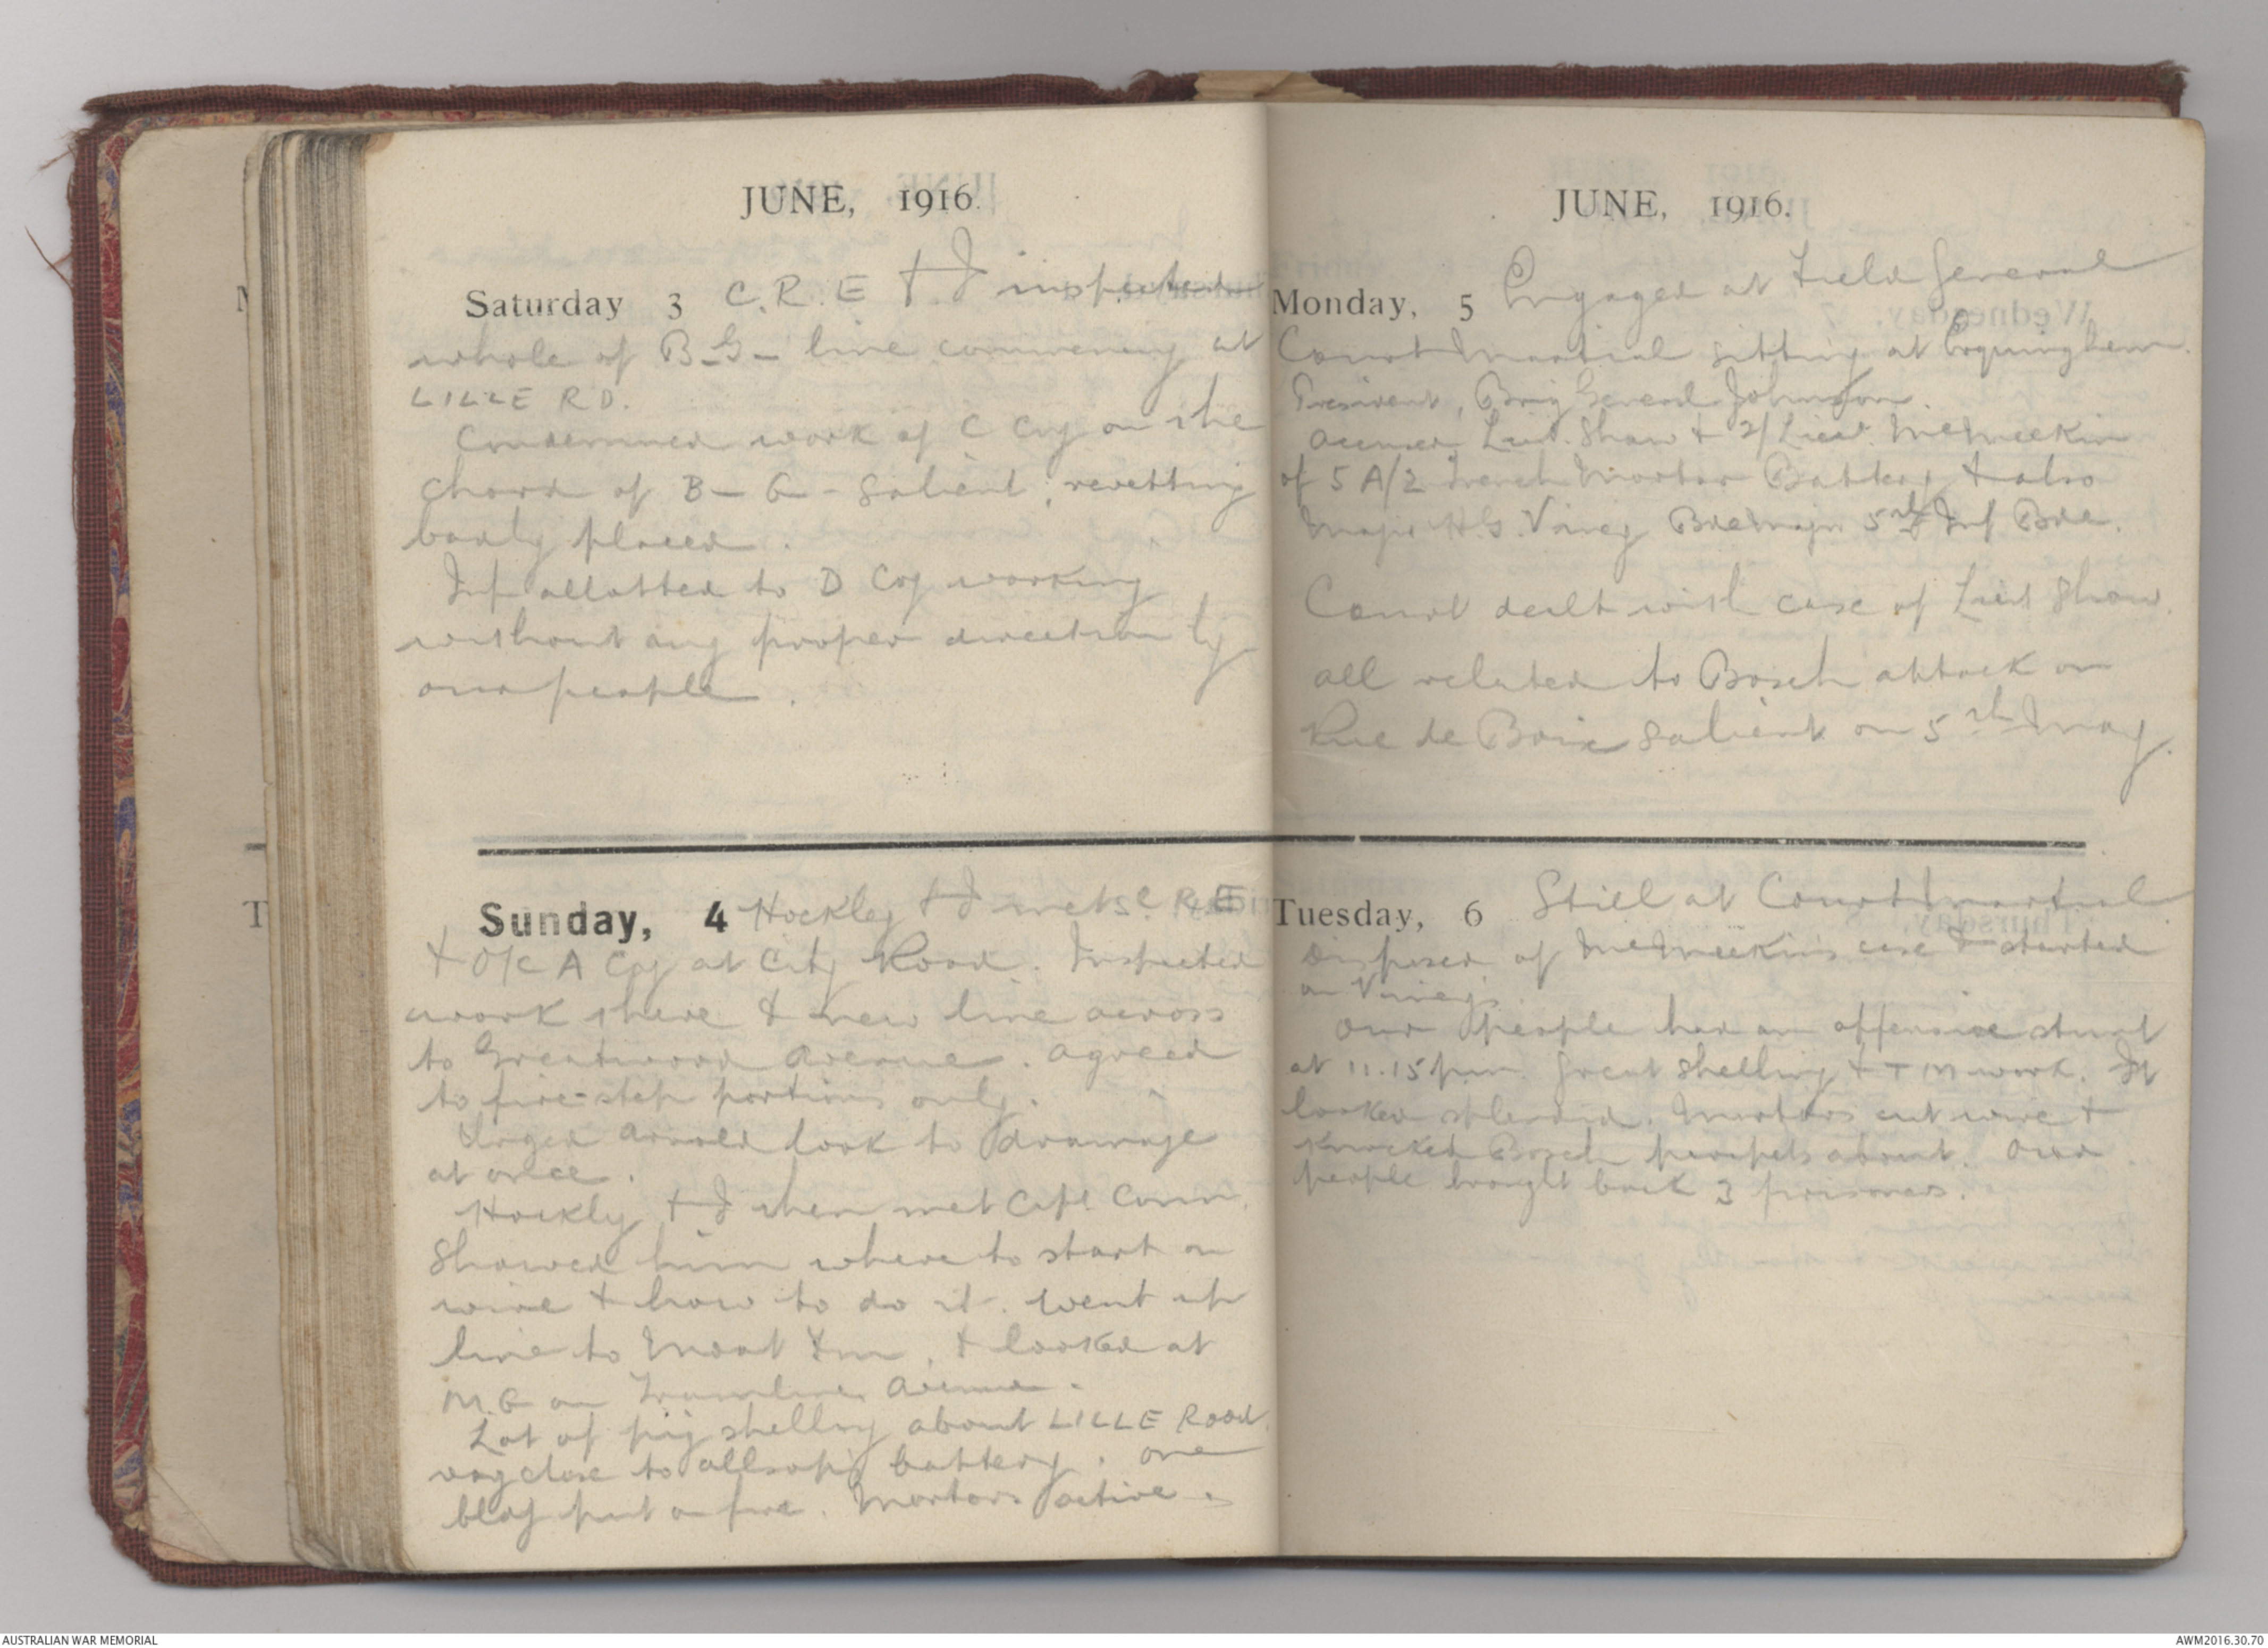 JUNE, 1916.
Saturday 3 C.R.E & I inspected
whole of B-G- line commencing at
LILLE RD.
Condemned work of C Coy on the
chord of B-G- salient; revetting
badly placed.
Inf allotted to D Coy working
without any proper direction by
our people.
Sunday, 4 Hockley & I met C.R.E
& O/c A Coy at City Road. Inspected
work there & new line across
to Greatwood Avenue. Agreed
to fire-step portions only.
Urged Arnold look to drainage
at once.
Hockly & I then met Capt Corm.
Showed him where to start on
wire & how to do it. Went up
line to Moat Fm, & looked at
M.G on Tramline Avenue.
Lot of shelling about LILLE Road
very close to allsop's battery. One
bldg put on fire. Mortars active.
JUNE, 1916.
Monday, 5 Engaged at Field General
Court Martial sitting at Erquinghem.
President, Brig General Johnston.
Accused Lieut. Shaw & 2/Lieut. McMeekin
of 5 A/2 Trench Mortar Battery & also
Major H.G. Viney Bde Major 5th Inf Bde.
Court dealt with case of Lieut Shaw.
all related to Bosch attack on
Rue de Bois salient on 5th May.
Tuesday, 6 Still at Court Martial
Disposed of McMeekin's case & started
on Viney's.
Our people had an offensive stunt
at 11.15 pm. Great shelling & TM work. It
looked splendid. Mortars cut wire &
knocked Bosch parapets about. Our
people brought back 3 prisoners.
AUSTRALIAN WAR MEMORIAL
AWM2016.30.70